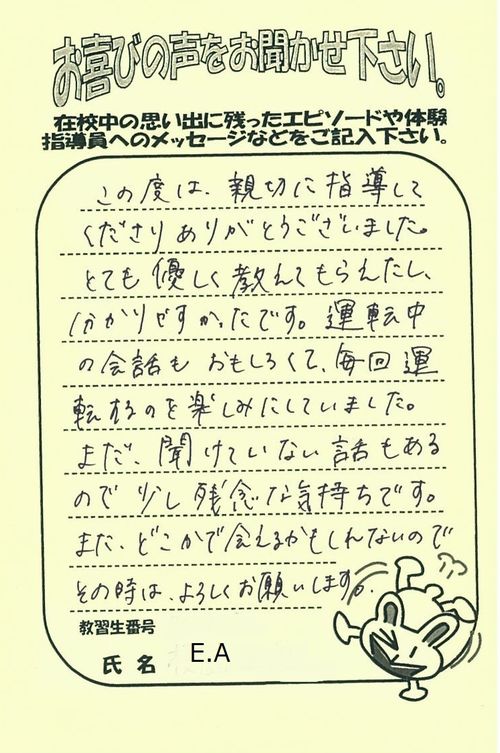 お喜びの声をお聞かせ下さい。
在校中の思い出に残ったエピソードや体験
指導員へのメッセージなどをご記入下さい。
この度は、親切に指導して
くださりありがとうございました。
とても優しく教えてもらえたし、
分かりやすかったです。運転中
の会話もおもしろくて、毎回運
転するのを楽しみにしていました。
まだ、聞けていない話もある
ので少し残念な気持ちです。
また、どこかで会えるかもしれないので
その時は、よろしくお願いします。
教習生番号
氏名 E.A